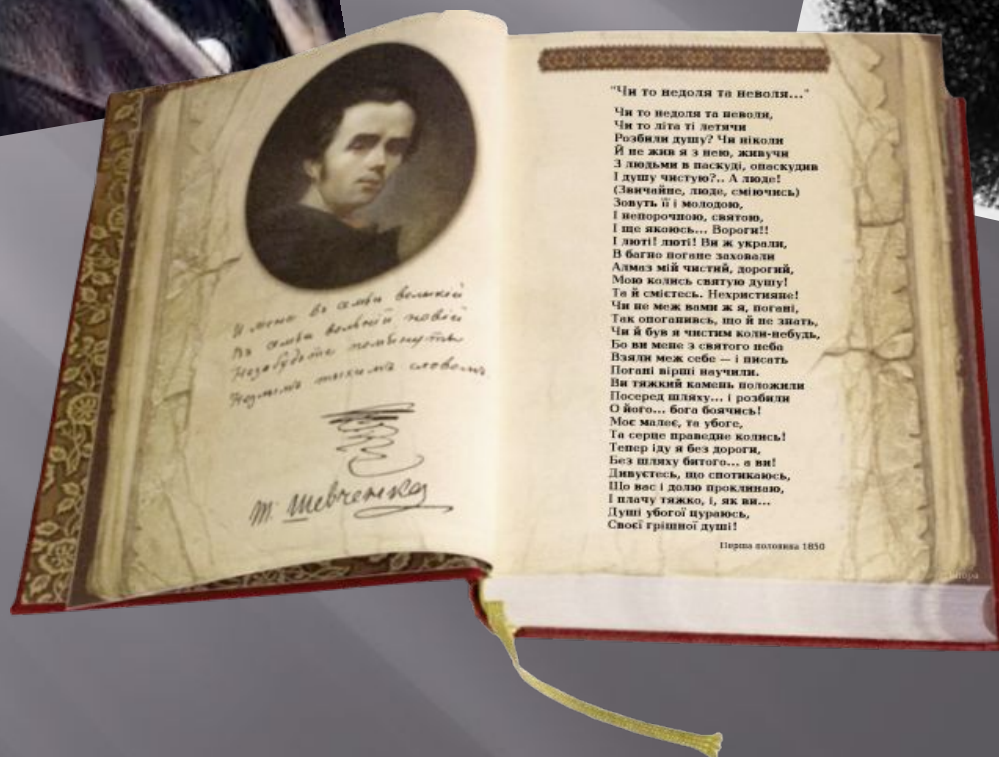 И мене въ семьи великій
Въ семьи вольній новій
Незабудьте помьянуть
Незлымъ тихимъ словомъ
Т. Шевченко
"Чи то недоля та неволя..."
Чи то недоля та неволя,
Чи то літа ті летячи
Розбили душу? Чи ніколи
Й не жив я з нею, живучи
З людьми в паскуді, опаскудив
І душу чистую?.. А люде!
(Звичайне, люде, сміючись)
Зовуть її і молодою,
І непорочною, святою,
І ще якоюсь... Вороги!!
І люті! люті! Ви ж украли,
В багно погане заховали
Алмаз мій чистий, дорогий,
Мою колись святую душу!
Та й смієтесь. Нехристияне!
Чи не меж вами ж я, погані,
Так опоганивсь, що й не знать,
Чи й був я чистим коли-небудь,
Бо ви мене з святого неба
Взяли меж себе — і писать
Погані вірші научили.
Ви тяжкий камень положили
Посеред шляху... і розбили
О його... бога боячись!
Моє малеє, та убоге,
Та серце праведне колись!
Тепер іду я без дороги,
Без шляху битого... а ви!
Дивуєтесь, що спотикаюсь,
Що вас і долю проклинаю,
І плачу тяжко, і, як ви...
Душі убогої цураюсь,
Своєї грішної душі!
Перша половина 1850